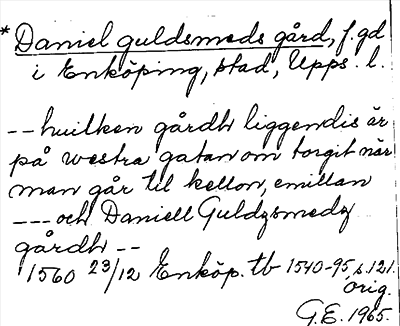 * Daniel guldsmeds gård, f.gd
i Enköping, stad, Upps. l.
-- huilken gårdh liggendis är
på westra gatan om torgit når
man går til kellon, emillan
--- och Daniell Guldzsmedz
gårdh --
1560 23/12 Enköp. tb 1540-95, s. 121.
orig.
G.E. 1965.